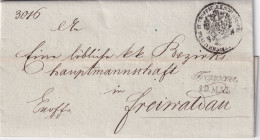 3016
An
Eine löbliche kk Bezirks
hauptmannschaft
Exoffo in
Freiwaldau
12 MAI